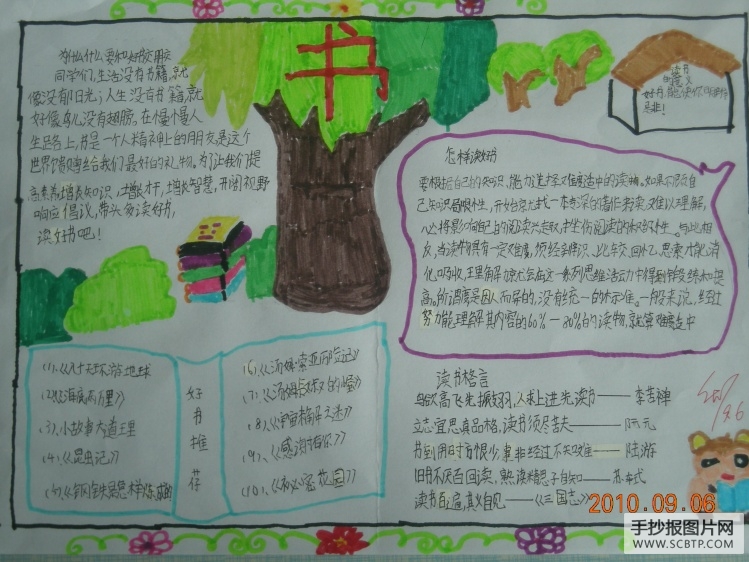 书
为什么要和好书交朋友
同学们,生活没有书籍,就
像没有阳光;人生没有书籍,就
好像鸟儿没有翅膀,在慢慢人
生路上,书是一个人精神上的朋友,是这个
世界馈赠给我们最好的礼物。为了让我们提
高素养,增长知识,增长才干,增长智慧,开阔视野
响应倡议,带头多读好书,
读好书吧!
读书
的意义
好书,能使你明辨
是非!
怎样读好书
要根据自己的知识、能力选择又难度适中的读物。如果不顾自
己知识局限性,开始就去找一本奇深的著作来读又难以理解,
必将影响自己的阅读兴趣,挫伤阅读的积极性。与此相
反,当读物具有一定难度,须经辨识、比较、回忆、思索才能消
化吸收,理解能力也会在这一系列思维活动中得到锻炼和提
高。所谓难度是因人而异的,没有统一的标准。一般来说,经过
努力能理解其内容的60%—80%的读物,就算难度适中
好
书
推
荐
(1)、《八十天环游地球
(2)、《海底两万里》
(3)、小故事大道理
(4)、《昆虫记》
(5)、《钢铁是怎样炼成的
(6)、《汤姆索亚历险记》
(7)、《汤姆叔叔的小屋》
(8)、《宇宙神秘之迷》
(9)、《感谢折磨》
(10)、《秘密花园》
读书格言
鸟欲高飞先振翅,人求上进先读书——李苦禅
立志宜思真品格,读书须尽苦夫——阮元
书到用时方恨少,事非经过不知难——陆游
旧书不厌百回读,熟读精思子自知——苏轼
读书百遍,其义自见——《三国志》
9.6
2010.09.06
手抄报图片网
WWW.SCBTP.COM